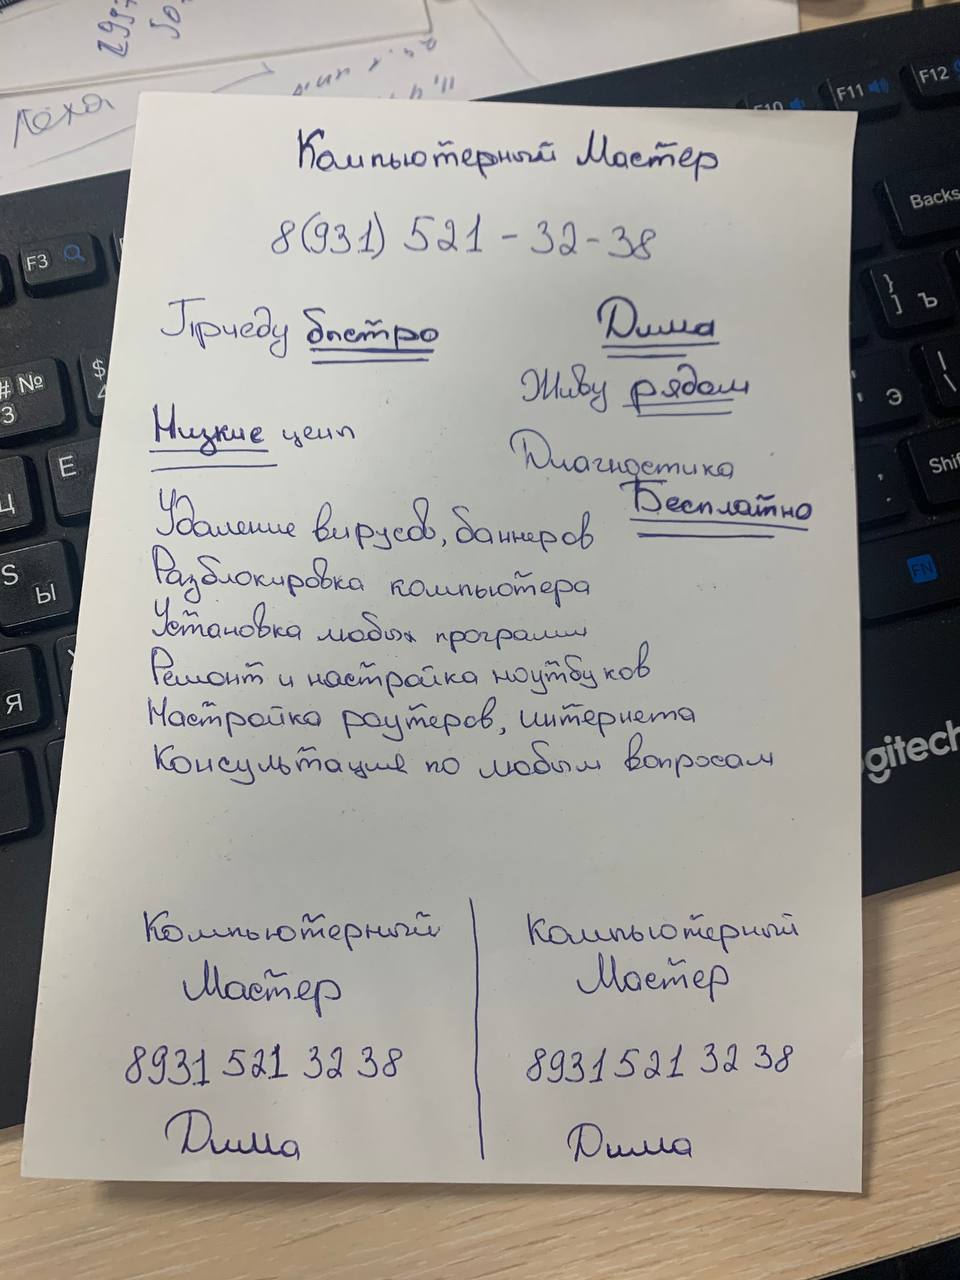 Леха
F3
F10
F11
F12
Backs
# №
3
$
4
Ц
Е
S
Ы
Я
}
]
Ъ
Э
Shif
FN
logitech
Компьютерный Мастер
8(931) 521-32-38
Приеду быстро
Дима
Живу рядом
Низкие цены
Диагностика
Бесплатно
Удаление вирусов, баннеров
Разблокировка компьютера
Установка любых программ
Ремонт и настройка ноутбуков
Настройка роутеров, интернета
Консультация по любым вопросам
Компьютерный
Мастер
8931 521 32 38
Дима
Компьютерный
Мастер
8931 521 32 38
Дима